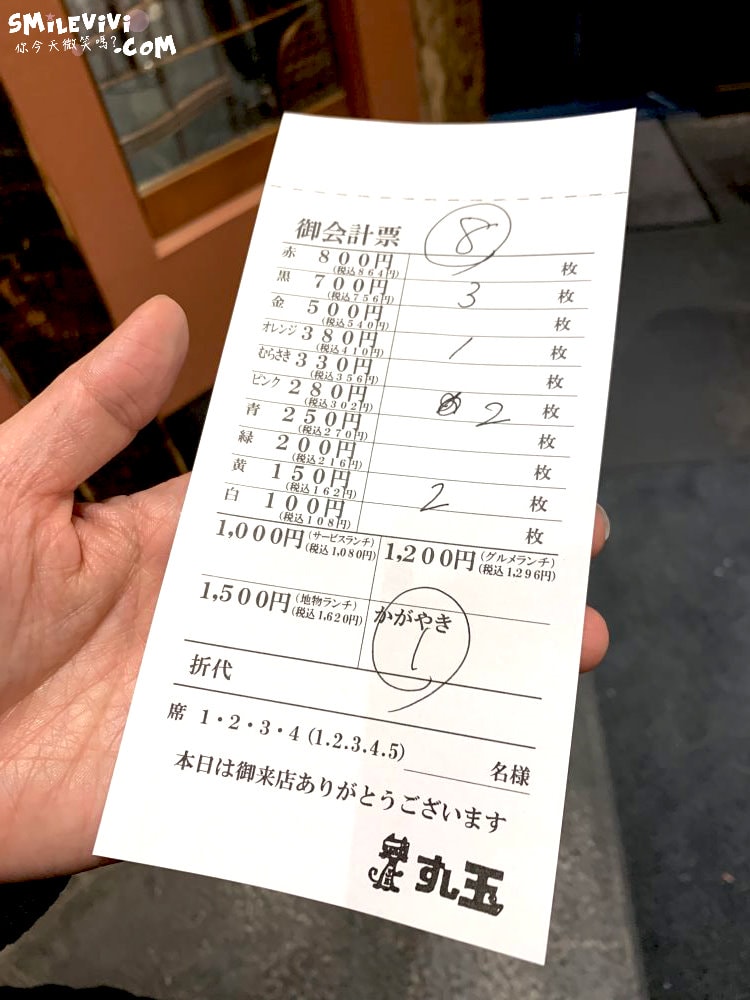 SMiLEViVi
你今天微笑嗎?.COM
御会計票 8
赤 800円 枚
(税込864円)
黒 700円 3 枚
(税込756円)
金 500円 枚
(税込540円)
オレンジ 380円 1 枚
(税込410円)
むらさき 330円 枚
(税込356円)
ピンク 280円 2 枚
(税込302円)
青 250円 枚
(税込270円)
緑 200円 枚
(税込216円)
黄 150円 2 枚
(税込162円)
白 100円 枚
(税込108円)
1,000円 (サービスランチ) (税込1,080円)
1,200円 (グルメランチ) (税込1,296円)
1,500円 (地物ランチ) (税込1,620円)
かがやき
1
折代
席 1・2・3・4 (1.2.3.4.5) 名様
本日は御来店ありがとうございます
丸玉